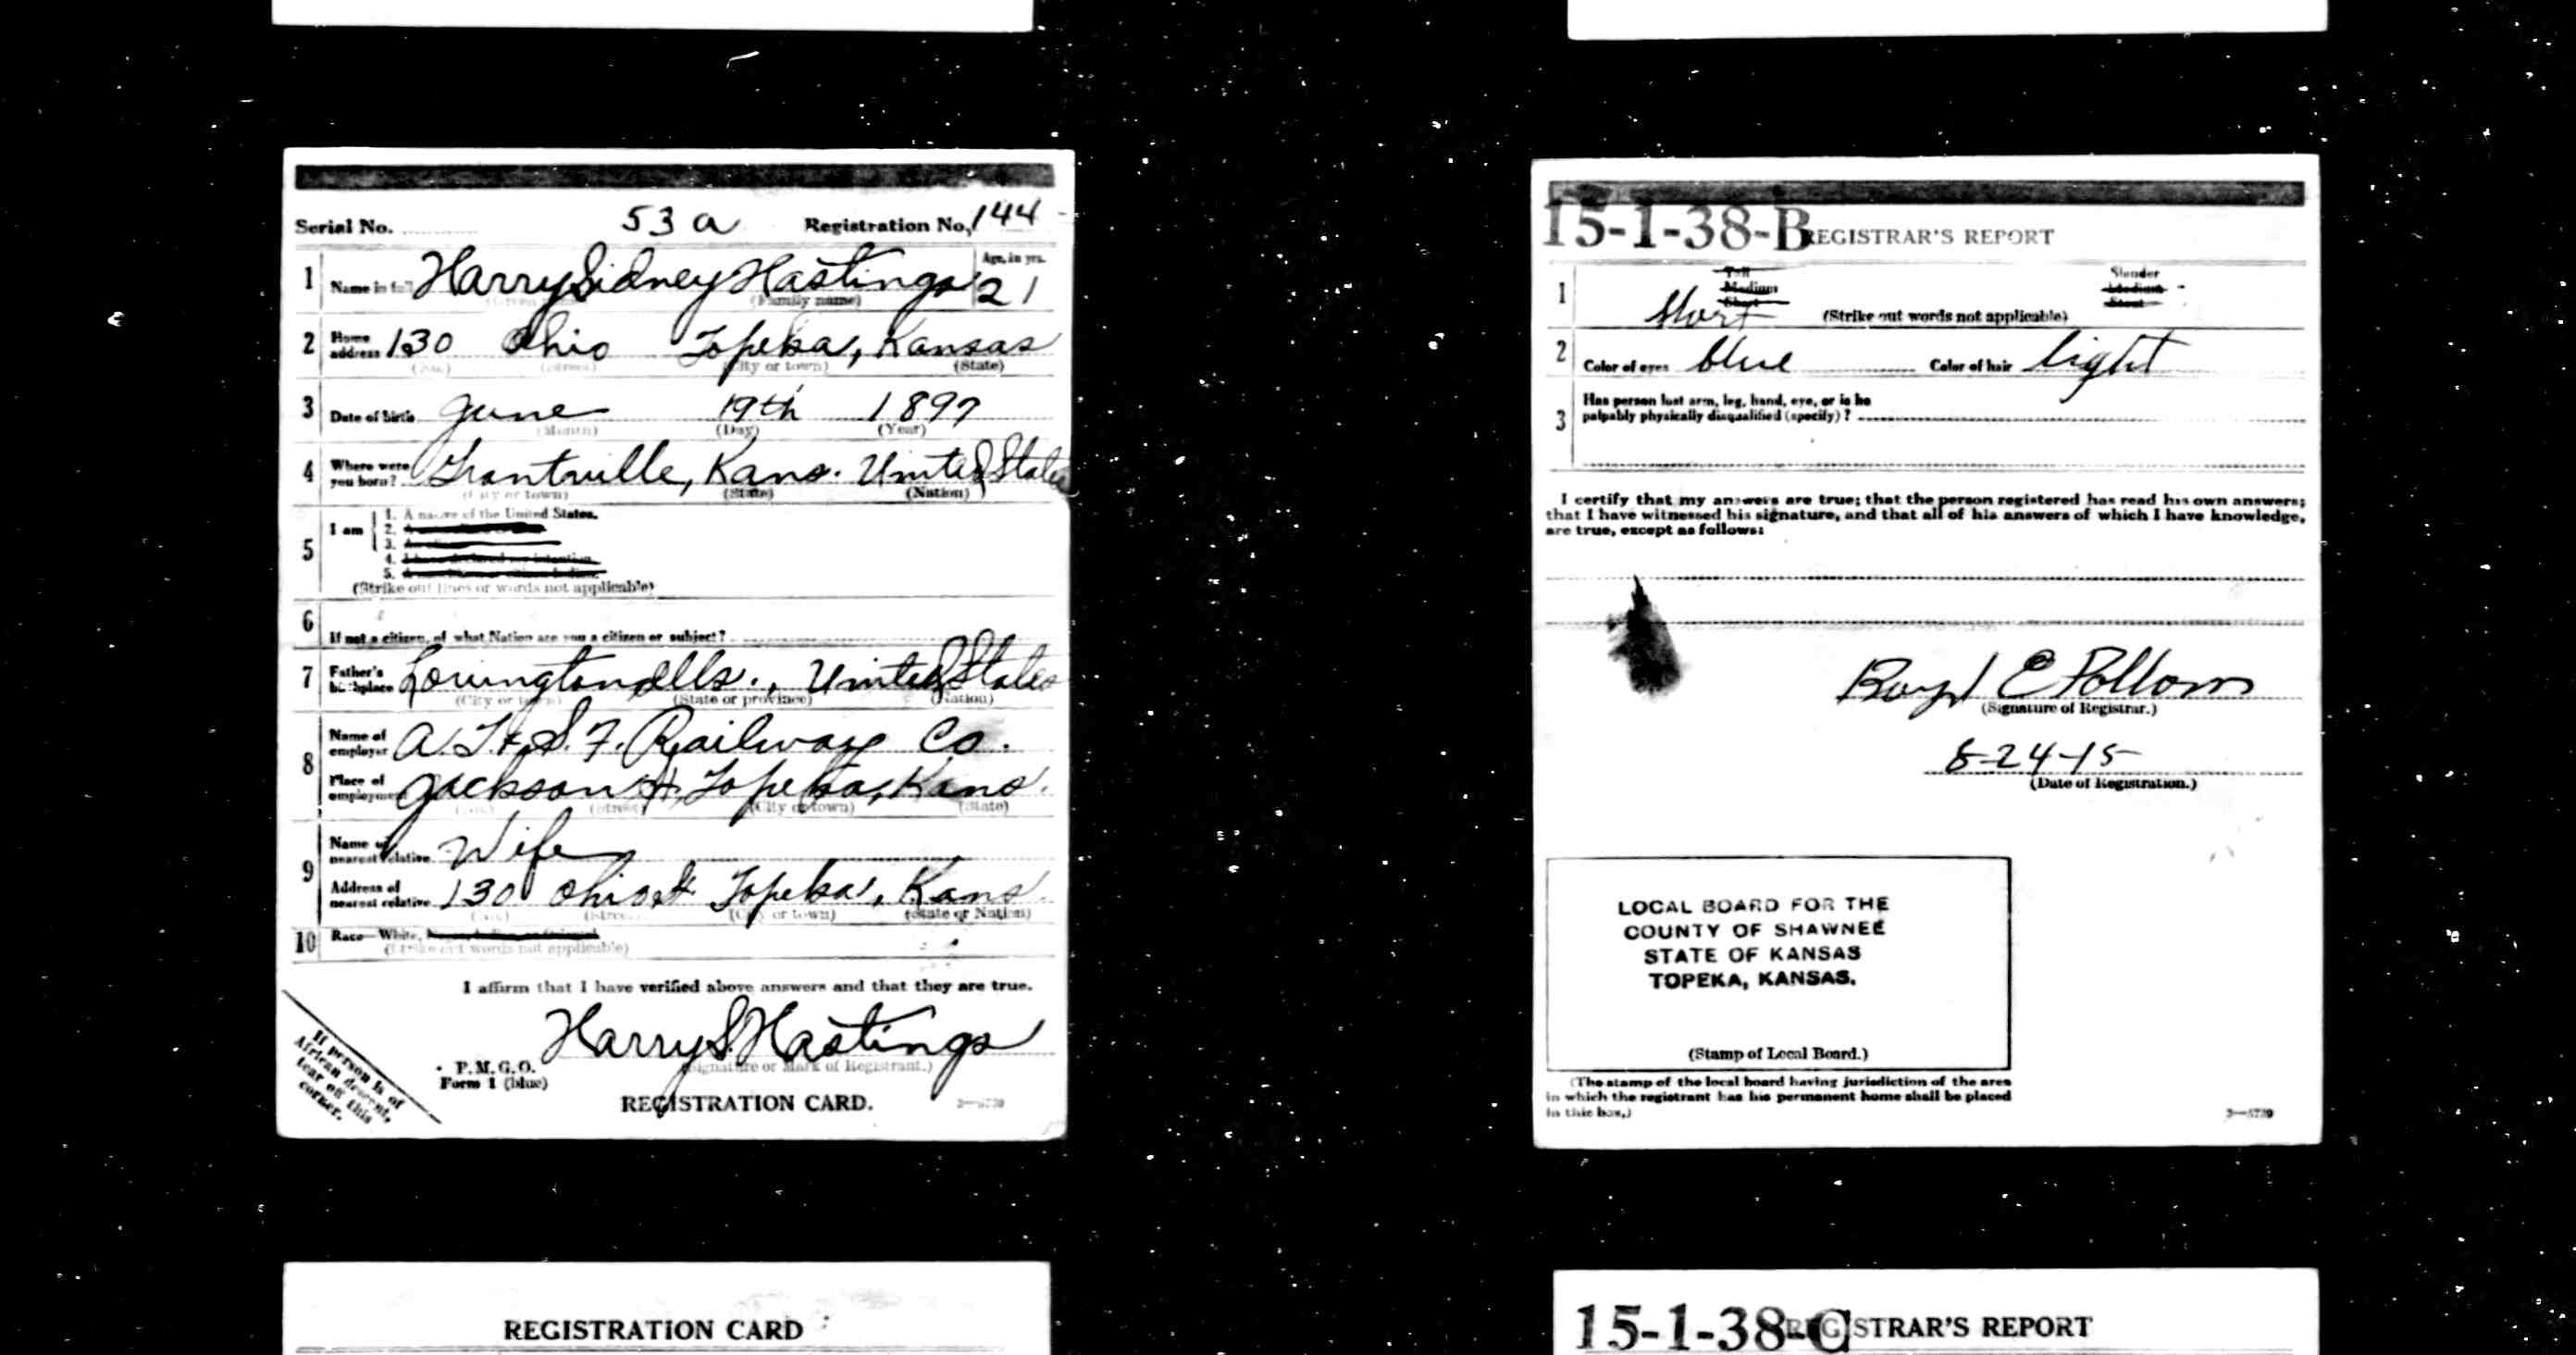 Serial No. 53 a Registration No. 144
1 Name in full Harry Sidney Hastings Age, in yrs. 21
(Family name)
2 Home address 130 Ohio Topeka, Kansas
(No.) (Street) (City or town) (State)
3 Date of birth June 19th 1897
(Month) (Day) (Year)
4 Where were you born? Grantville, Kans. United States
(City or town) (State) (Nation)
5 I am 1. A native of the United States.
2.
3.
4. I have declared my intention
5.
(Strike out lines or words not applicable)
6 If not a citizen, of what Nation are you a citizen or subject?
7 Father's birthplace Lovington Ills., United States
(City or town) (State or province) (Nation)
8 Name of employer A.T.&S.F. Railway Co.
Place of employment Jackson St, Topeka, Kans.
(No.) (Street) (City or town) (State)
9 Name of nearest relative Wife
Address of nearest relative 130 Ohio St. Topeka, Kans.
(No.) (Street) (City or town) (State or Nation)
10 Race—White,
(Strike out words not applicable)
I affirm that I have verified above answers and that they are true.
Harry S. Hastings
(Signature or Mark of Registrant.)
P.M.G.O.
Form 1 (blue)
REGISTRATION CARD.
If person is of
African descent,
tear off this
corner.
15-1-38-B REGISTRAR'S REPORT
1 Tall Slender
Medium Medium
Short Stout
Short (Strike out words not applicable)
2 Color of eyes blue Color of hair light
3 Has person lost arm, leg, hand, eye, or is he
palpably physically disqualified (specify)?
I certify that my answers are true; that the person registered has read his own answers;
that I have witnessed his signature, and that all of his answers of which I have knowledge,
are true, except as follows:
Boyd E Pollom
(Signature of Registrar.)
8-24-15
(Date of Registration.)
LOCAL BOARD FOR THE
COUNTY OF SHAWNEE
STATE OF KANSAS
TOPEKA, KANSAS.
(Stamp of Local Board.)
(The stamp of the local board having jurisdiction of the area
in which the registrant has his permanent home shall be placed
in this box.)
3—5739
REGISTRATION CARD
15-1-38-C REGISTRAR'S REPORT